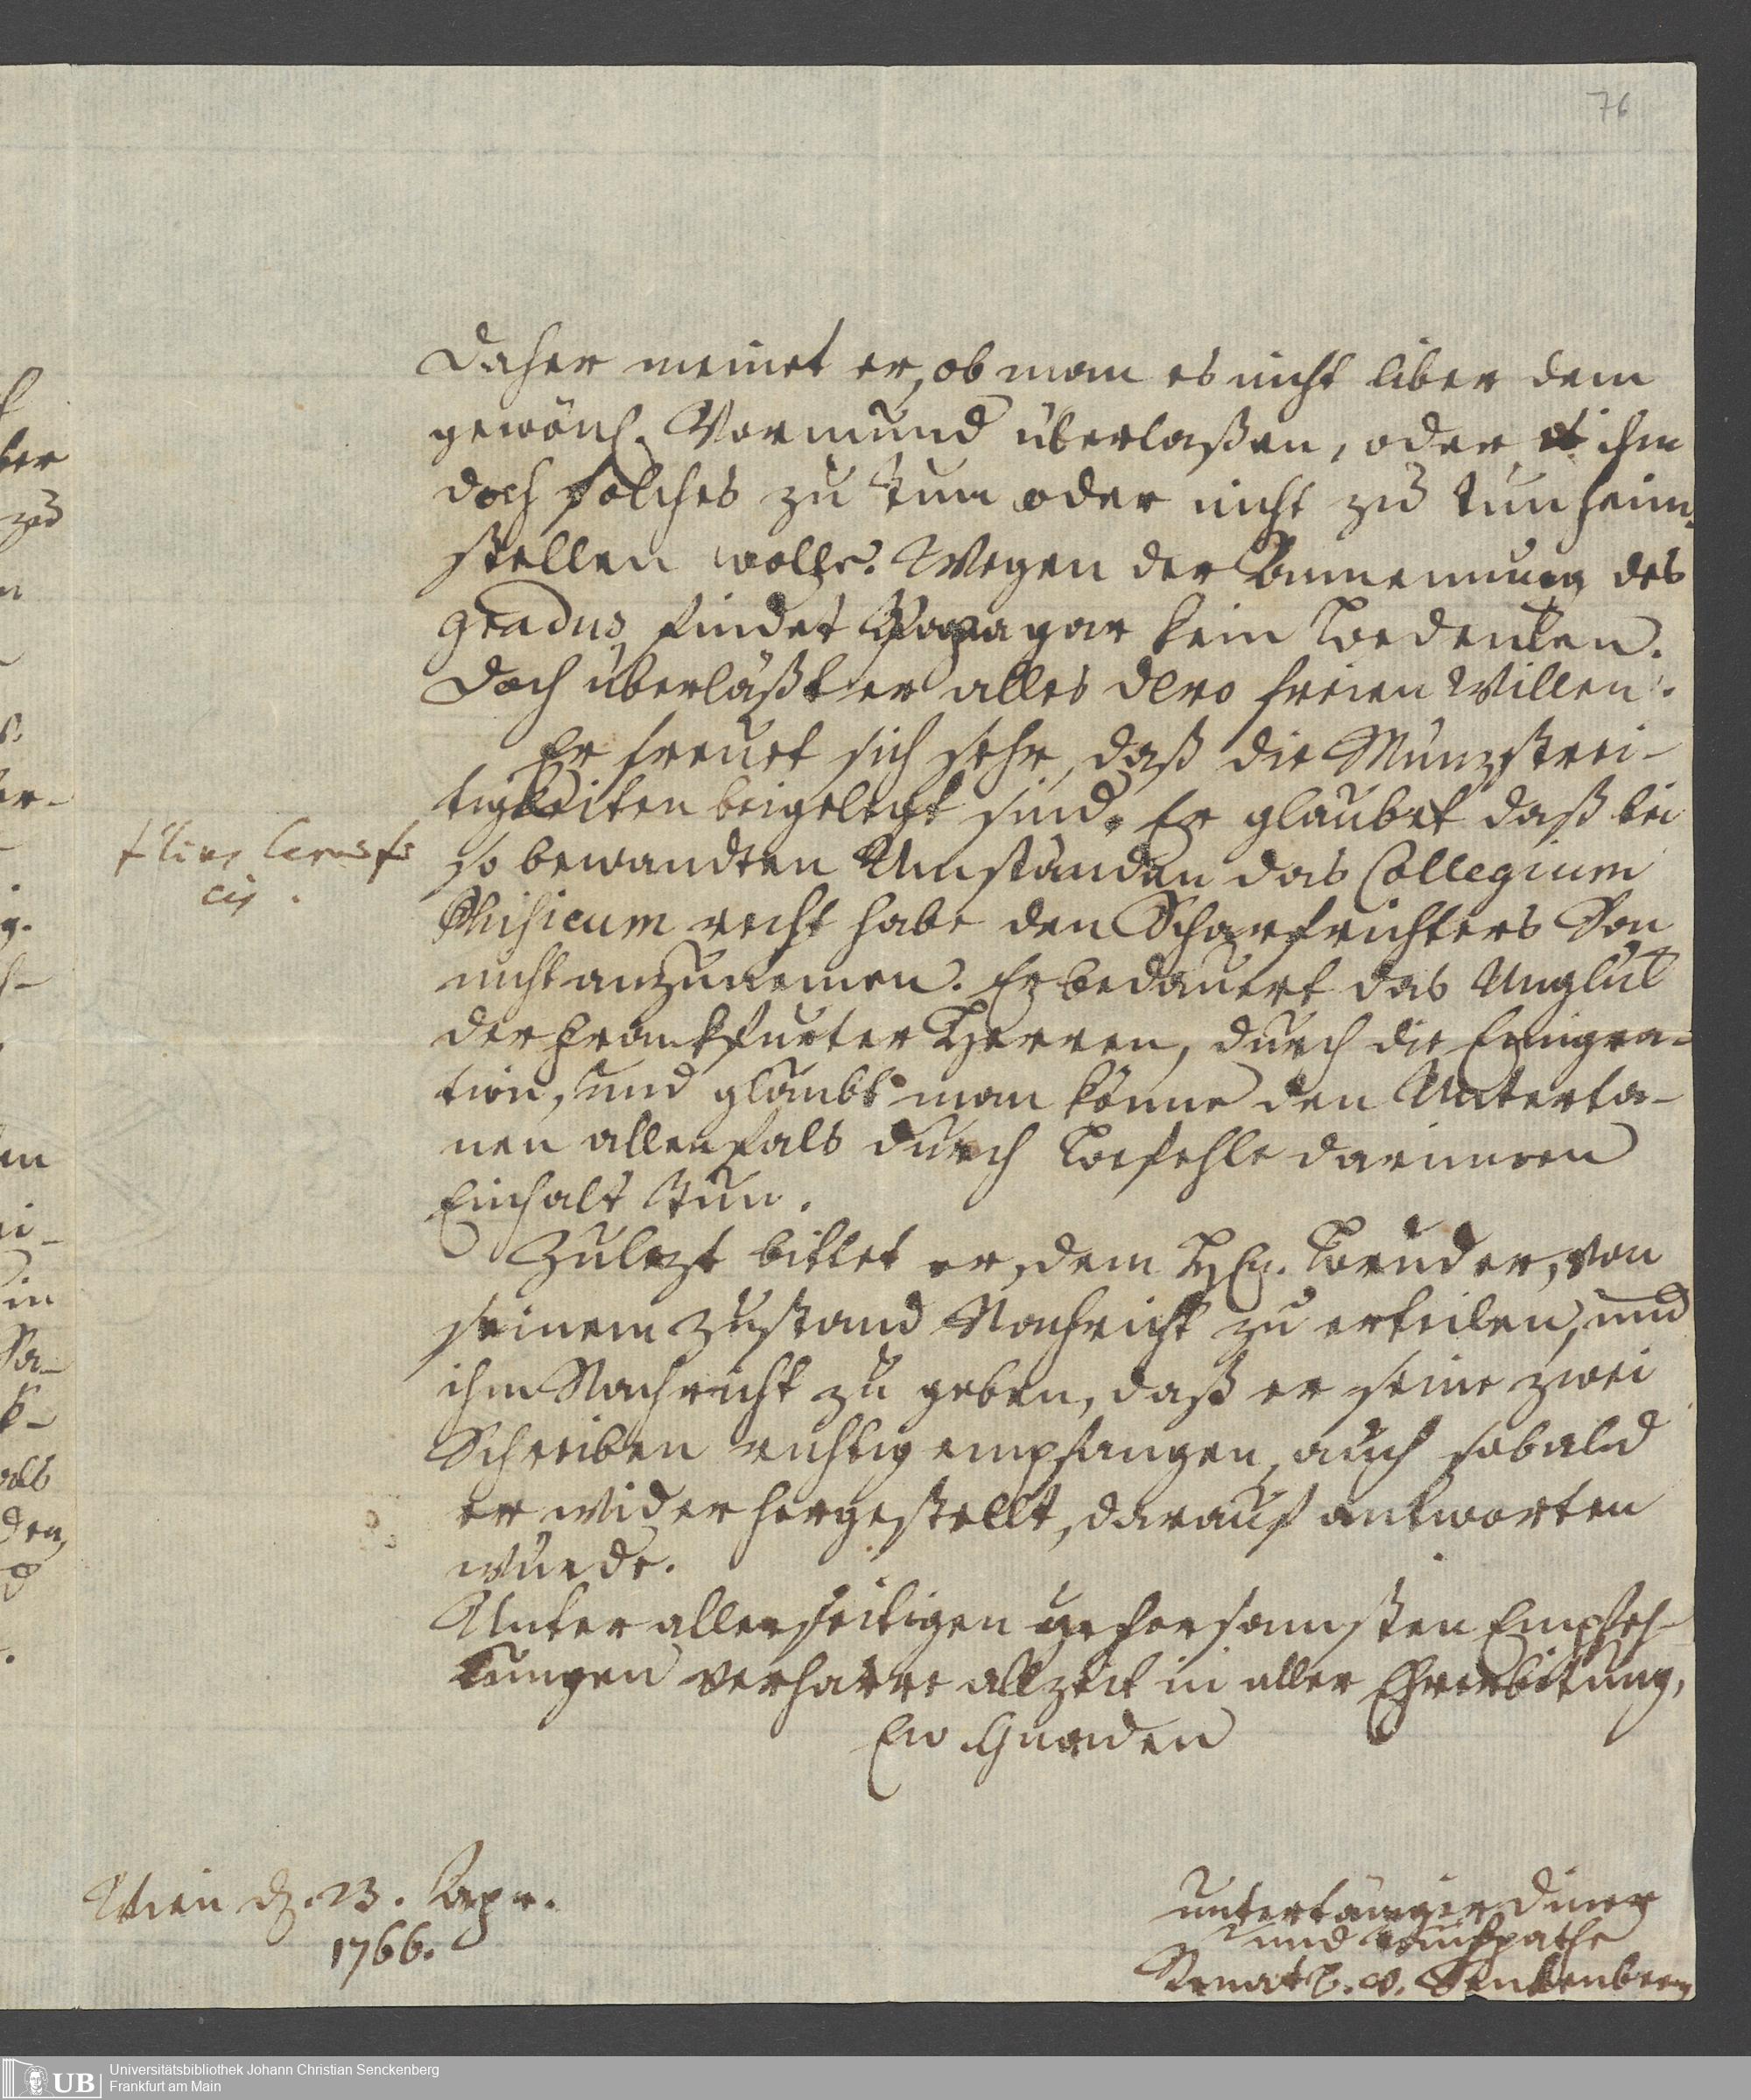 76
Daher meinet er, ob man es nicht liber dem
gewönl. Vormund überlaßen, oder ihm
doch solches zu tun oder nicht zu tun heim-
stellen wolle. Wegen der Annemung des
gradus findet Papa gar kein Bedenken.
Doch überläßt er alles dero freien Willen.
Er freuet sich sehr, daß die Münzstrei-
tigkeiten beigelegt sind. Er glaubet daß bei
so bewandten Umständen das Collegium
Phisicum recht habe den Scharfrichters Son
nicht anzunemen. Er bedauert das Unglük
der Frankfurter Herren, durch die Emigra-
tion, und glaubt man könne den Unterta-
nen allenfals durch Befehle darinnen
Einhalt tun.
Zulezt bittet er, dem Hn. Bruder, von
seinem Zustand Nachricht zu erteilen, und
ihm Nachricht zu geben, daß er seine zwei
Schreiben richtig empfangen, auch sobald
er wider hergestellt, darauf antworten
würde.
Unter allerseitigen gehorsamsten Empfeh-
lungen verharre allzeit in aller Ehrerbitung,
Ew Gnaden
Wien d. 23. Apr.
1766.
untertäniger Diner
und Taufpathe
Renat C. v. Senkenberg
UB Universitätsbibliothek Johann Christian Senckenberg
Frankfurt am Main